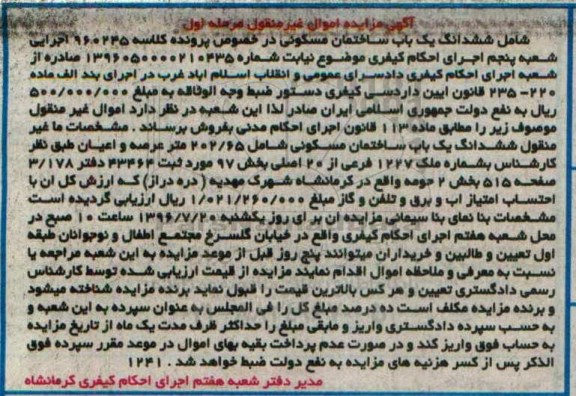 آگهی مزایده اموال غیرمنقول مرحله اول
شامل ششدانگ یک باب ساختمان مسکونی در خصوص پرونده کلاسه ۹۶۰۲۴۵ اجرایی
شعبه پنجم اجرای احکام کیفری موضوع نیابت شماره ۱۳۹۶۰۵۰۰۰۰۲۱۰۴۳۵ صادره از
شعبه اجرای احکام کیفری دادسرای عمومی و انقلاب اسلام اباد غرب در اجرای بند الف ماده
۲۲۰- ۲۳۵ قانون ایین دادرسی کیفری دستور ضبط وجه الوثاقه به مبلغ ۵۰۰/۰۰۰/۰۰۰
ریال به نفع دولت جمهوری اسلامی ایران صادر لذا این شعبه در نظر دارد اموال غیر منقول
موصوف زیر را مطابق ماده ۱۱۳ قانون اجرای احکام مدنی بفروش برساند . مشخصات ما غیر
منقول ششدانگ یک باب ساختمان مسکونی شامل ۲۰۲/۶۵ متر عرصه و اعیان طبق نظر
کارشناس بشماره ملک ۱۲۲۷ فرعی از ۲۰ اصلی بخش ۹۷ مورد ثبت ۴۳۴۶۴ دفتر ۳/۱۷۸
صفحه ۵۱۵ بخش ۲ حومه واقع در کرمانشاه شهرک مهدیه ( دره دراز) که ارزش کل ان با
احتساب امتیاز اب و برق و تلفن و گاز مبلغ ۱/۰۲۱/۲۶۰/۰۰۰ ریال ارزیابی گردیده است
مشخصات بنا نمای بنا سیمانی مزایده ان بر ای روز یکشنبه ۱۳۹۶/۷/۲۰ ساعت ۱۰ صبح در
محل شعبه هفتم اجرای احکام کیفری واقع در خیابان گلسرخ مجتمع اطفال و نوجوانان طبقه
اول تعیین و طالبین و خریداران میتوانند پنج روز قبل از موعد مزایده به این شعبه مراجعه یا
نسبت به معرفی و ملاحظه اموال اقدام نمایند مزایده از قیمت ارزیابی شده توسط کارشناس
رسمی دادگستری تعیین و هر کس بالاترین قیمت را قبول نماید برنده مزایده شناخته میشود
و برنده مزایده مکلف است ده درصد مبلغ کل را فی المجلس به عنوان سپرده به این شعبه و
به حسب سپرده دادگستری واریز و مابقی مبلغ را حداکثر ظرف مدت یک ماه از تاریخ مزایده
به حساب فوق واریز کند و در صورت عدم پرداخت بقیه بهای اموال در موعد مقرر سپرده فوق
الذکر پس از کسر هزنیه های مزایده به نفع دولت ضبط خواهد شد . ۱۲۴۱
مدیر دفتر شعبه هفتم اجرای احکام کیفری کرمانشاه